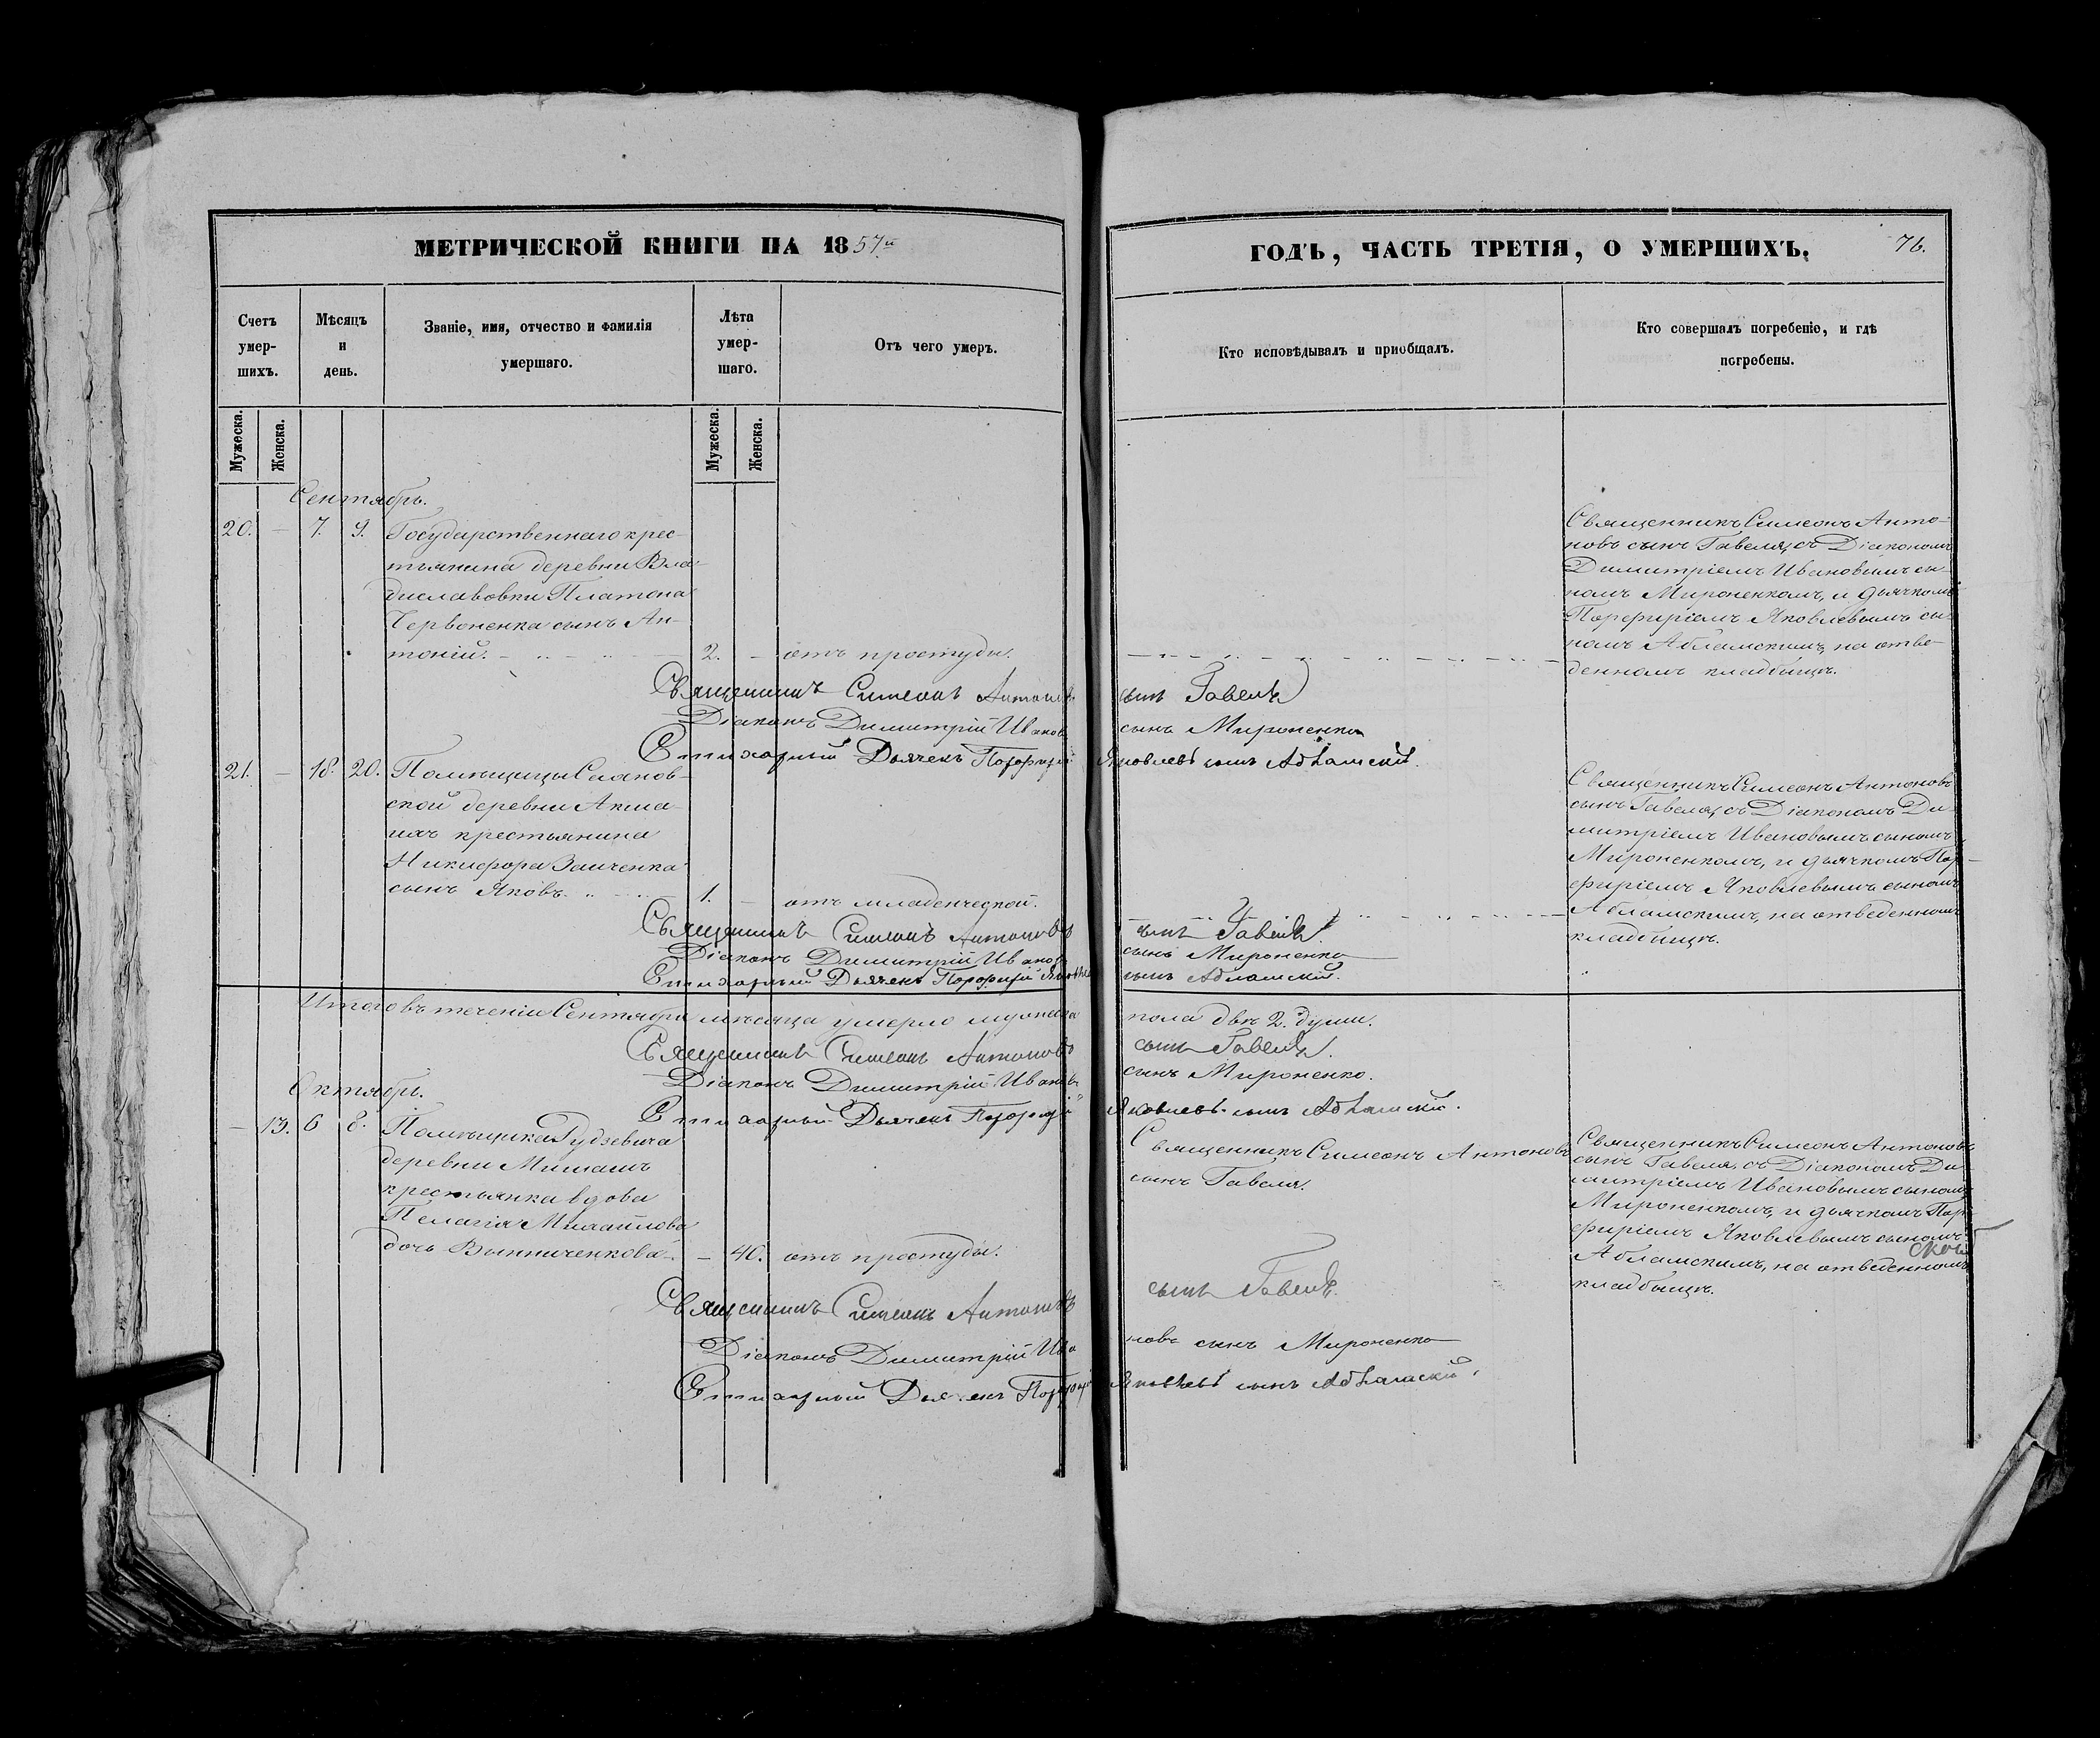 МЕТРИЧЕСКОЙ КНИГИ НА 1857й
ГОДЪ, ЧАСТЬ ТРЕТІЯ, О УМЕРШИХЪ.
76.
Счетъ умер-шихъ.
Мѣсяцъ и день.
Званіе, имя, отчество и фамилія умершаго.
Лѣта умер-шаго.
Отъ чего умеръ.
Кто исповѣдывалъ и пріобщалъ.
Кто совершалъ погребеніе, и гдѣ погребены.
Мужеска.
Женска.
Мужеска.
Женска.
Сентябрь.
20. — 7. 9. Государственнаго крес-
тьянина деревни Вла-
диславовки Платона
Червоненка сынъ Ан-
тоній. 2. — отъ простуды.
Священникъ Симеонъ Анто-
новъ сынъ Гавеля, съ Діакономъ
Димитріемъ Ивановымъ сы-
номъ Мироненкомъ, и дьячкомъ
Порфиріемъ Яковлевымъ сы-
номъ Абламскимъ, на отве-
денномъ кладбищѣ.
Священникъ Симеонъ Антоновъ сынъ Гавеля
Діаконъ Димитрій Ивановъ сынъ Мироненко
Стихарный Дьячекъ Порфирій Яковлевъ сынъ Абламскій.
21. — 18. 20. Помѣщицы Селянов-
ской деревни Акма-
нач крестьянина
Никифора Заиченка
сынъ Яковъ. 1. — отъ младенческой.
Священникъ Симеонъ Антоновъ
сынъ Гавеля, съ Діакономъ Ди-
митріемъ Ивановымъ сыномъ
Мироненкомъ, и дьячкомъ Пор-
фиріемъ Яковлевымъ сыномъ
Абламскимъ, на отведенномъ
кладбищѣ.
Священникъ Симеонъ Антоновъ сынъ Гавеля.
Діаконъ Димитрій Ивановъ сынъ Мироненко
Стихарный Дьячекъ Порфирій Яковлевъ сынъ Абламскій.
Итого въ теченіи Сентября мѣсяца умерло мужеска пола двѣ 2. души.
Священникъ Симеонъ Антоновъ сынъ Гавеля.
Діаконъ Димитрій Ивановъ сынъ Мироненко.
Стихарный Дьячекъ Порфирій Яковлевъ сынъ Абламскій.
Октябрь.
— 13. 6 8. Помѣщика Рудзевича
деревни
крестьянка вдова
Пелагія Михайлова
дочь Винниченкова. — 40. отъ простуды.
Священникъ Симеонъ Антоновъ
сынъ Гавеля.
Священникъ Симеонъ Антоновъ
сынъ Гавеля, съ Діакономъ Ди-
митріемъ Ивановымъ сыномъ
Мироненкомъ, и дьячкомъ Пор-
фиріемъ Яковлевымъ сыномъ
Абламскимъ, на отведенномъ
кладбищѣ.
Священникъ Симеонъ Антоновъ сынъ Гавеля.
Діаконъ Димитрій Ивановъ сынъ Мироненко
Стихарный Дьячекъ Порфирій Яковлевъ сынъ Абламскій.